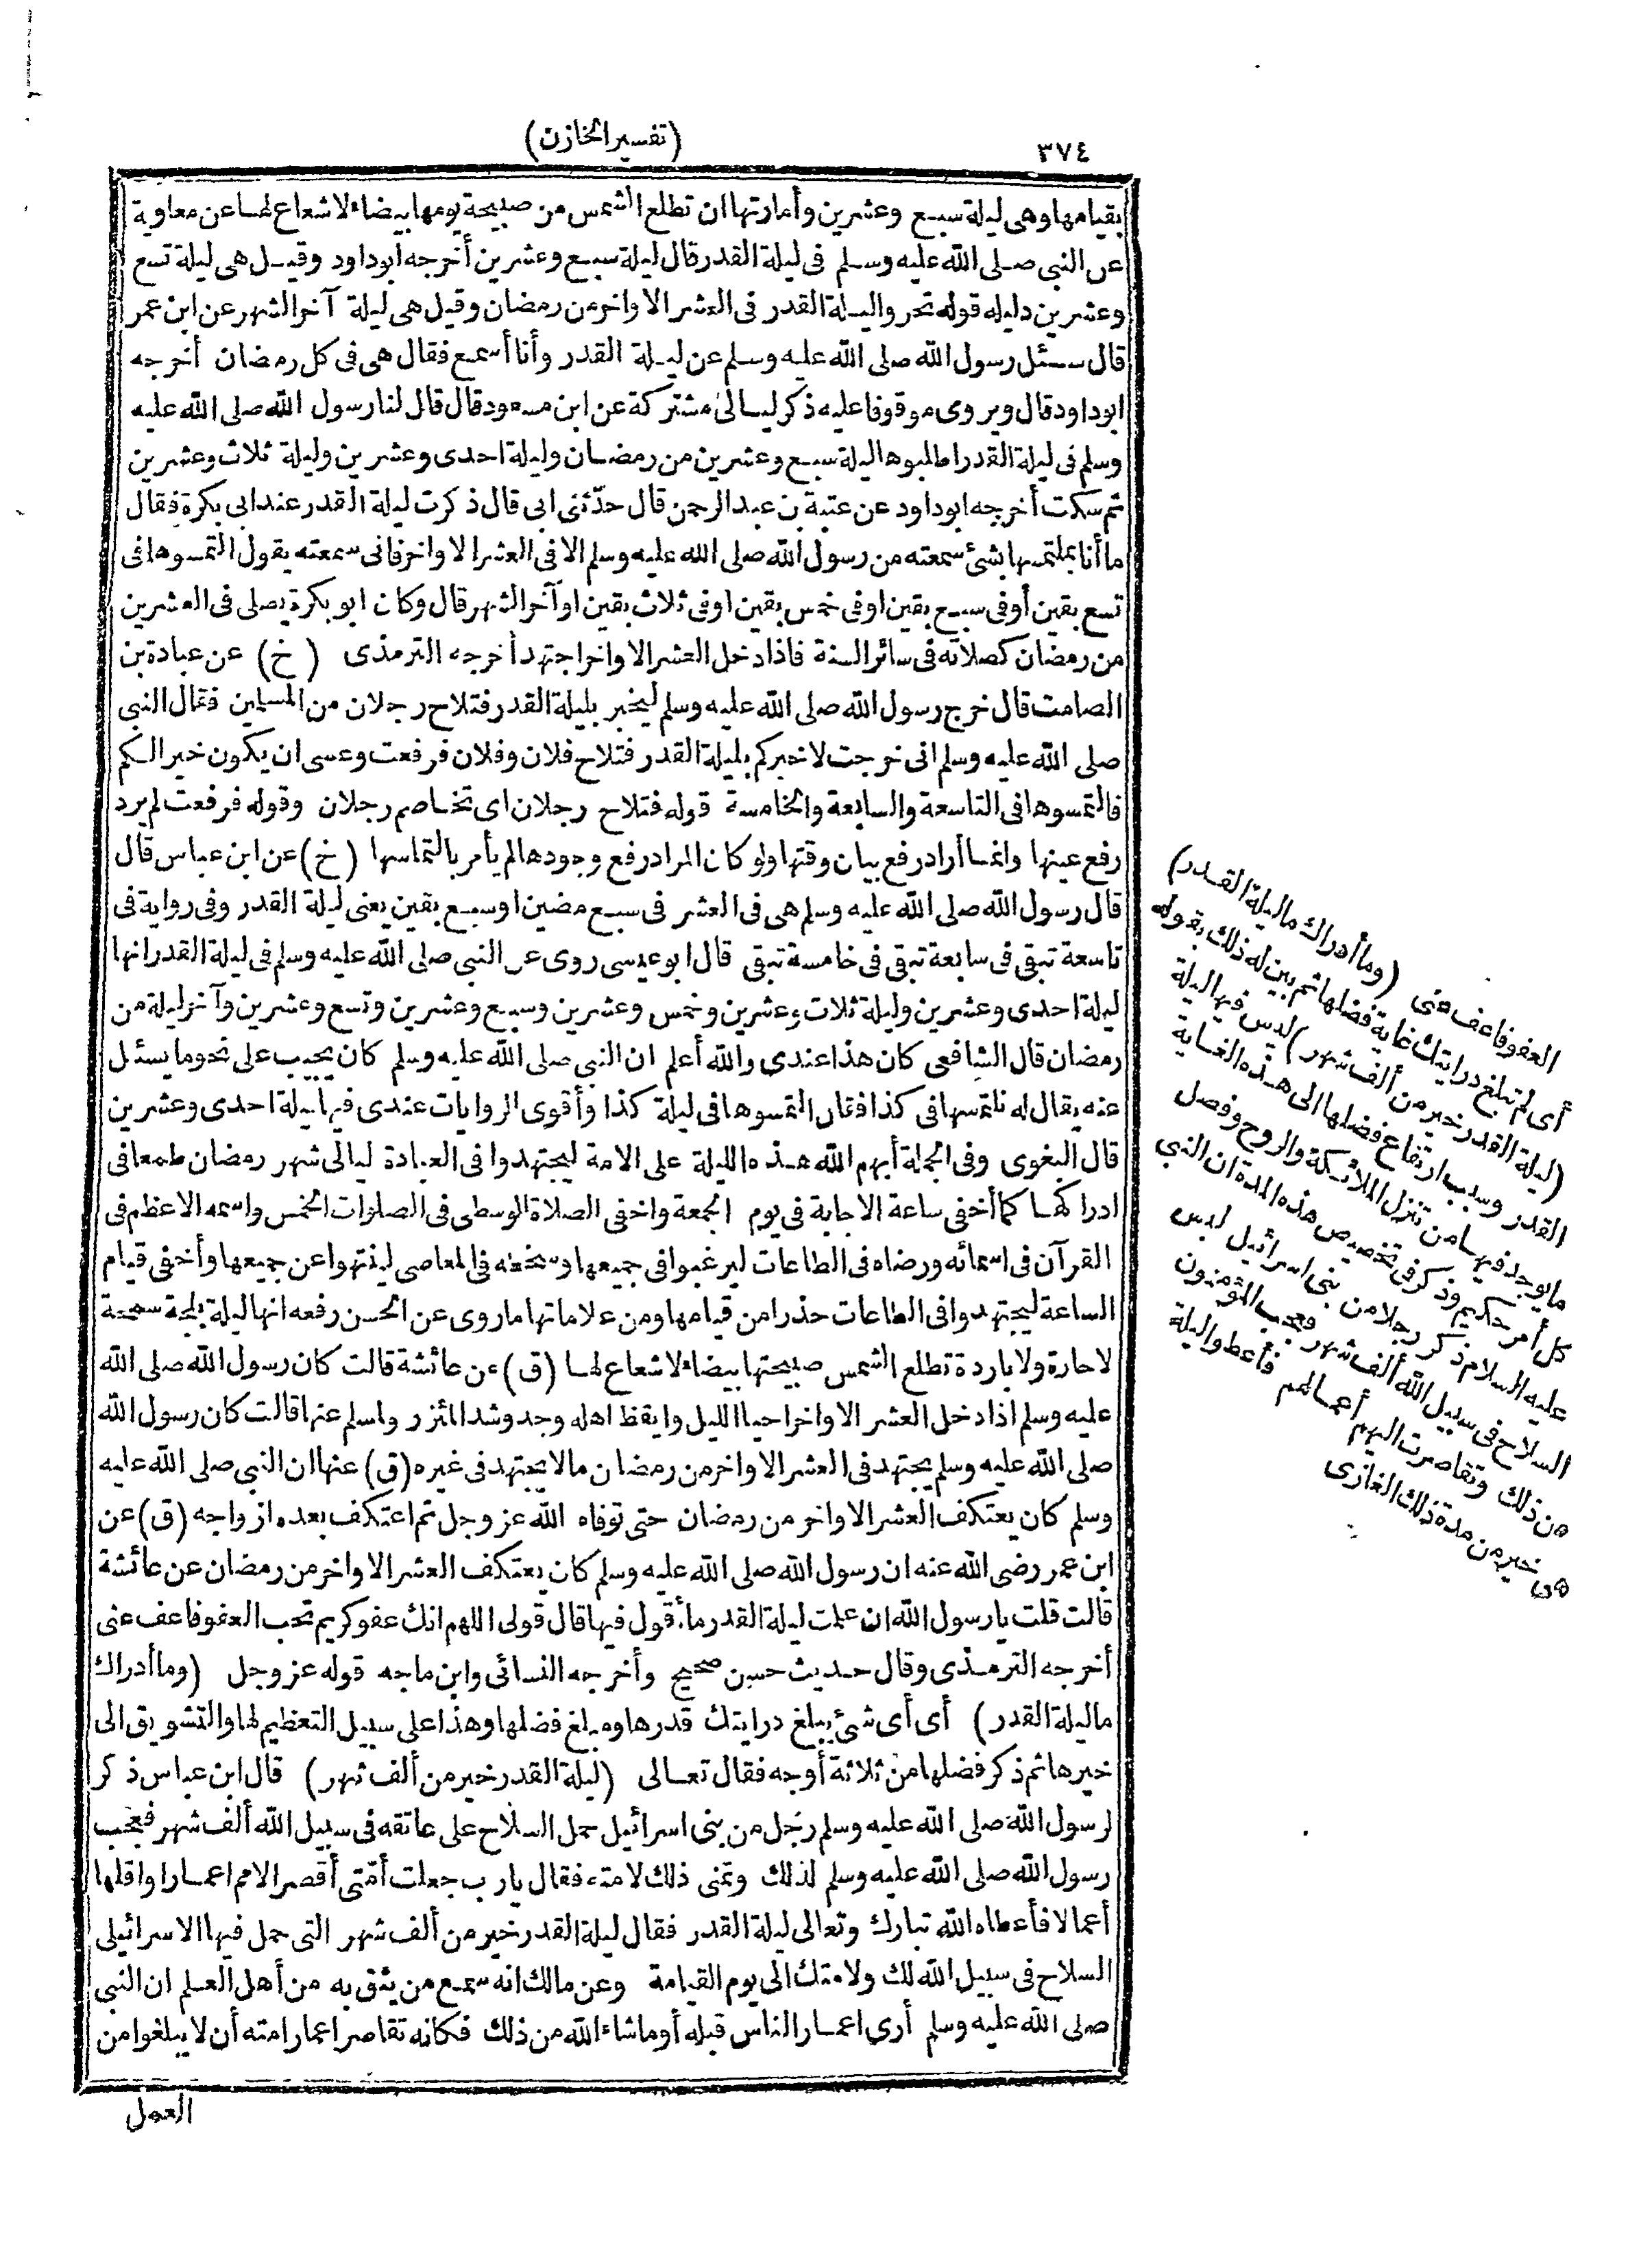 ٣٧٤
(تفسير الخازن)
بقيامها وهى ليلة سبع وعشرين وأمارتها ان تطلع الشمس من صبيحة يومها بيضاء لاشعاع لها عن معاوية
عن النبى صلى الله عليه وسلم فى ليلة القدر قال ليلة سبع وعشرين أخرجه ابوداود وقيل هى ليلة تسع
وعشرين دليله قوله تحروا ليلة القدر فى العشر الاواخر من رمضان وقيل هى ليلة آخر الشهر عن ابن عمر
قال سئل رسول الله صلى الله عليه وسلم عن ليلة القدر وأنا أسمع فقال هى فى كل رمضان أخرجه
ابوداود قال ويروى موقوفا عليه ذكر ليالى مشتركة عن ابن مسعود قال قال لنا رسول الله صلى الله عليه
وسلم فى ليلة القدر اطلبوها ليلة سبع وعشرين من رمضان وليلة احدى وعشرين وليلة ثلاث وعشرين
ثم سكت أخرجه ابوداود عن عتبة بن عبد الرحمن قال حدّثنى ابى قال ذكرت ليلة القدر عند ابى بكرة فقال
ما أنا بملتمسها بشئ سمعته من رسول الله صلى الله عليه وسلم الا فى العشر الاواخر فانى سمعته يقول التمسوها فى
تسع بقين أو فى سبع بقين او فى خمس بقين او فى ثلاث بقين او آخر الشهر قال وكان ابو بكرة يصلى فى العشرين
من رمضان كصلاته فى سائر السنة فاذا دخل العشر الاواخر اجتهد أخرجه الترمذى (خ) عن عبادة بن
الصامت قال خرج رسول الله صلى الله عليه وسلم ليخبر بليلة القدر فتلاح رجلان من المسلمين فقال النبى
صلى الله عليه وسلم انى خرجت لاخبركم بليلة القدر فتلاح فلان وفلان فرفعت وعسى ان يكون خيرا لكم
فالتمسوها فى التاسعة والسابعة والخامسة قوله فتلاح رجلان اى تخاصم رجلان وقوله فرفعت لم يرد
رفع عينها وانما أراد رفع بيان وقتها ولو كان المراد رفع وجودها لم يأمر بالتماسها (خ) عن ابن عباس قال
قال رسول الله صلى الله عليه وسلم هى فى العشر فى سبع مضين او سبع بقين يعنى ليلة القدر وفى رواية فى
تاسعة تبقى فى سابعة تبقى فى خامسة تبقى قال ابوعيسى روى عن النبى صلى الله عليه وسلم فى ليلة القدر انها
ليلة احدى وعشرين وليلة ثلاث وعشرين وخمس وعشرين وسبع وعشرين وتسع وعشرين وآخر ليلة من
رمضان قال الشافعى كان هذا عندى والله أعلم ان النبى صلى الله عليه وسلم كان يجيب على نحو ما يسئل
عنه يقال له نلتمسها فى كذا فقال التمسوها فى ليلة كذا وأقوى الروايات عندى فيها ليلة احدى وعشرين
قال البغوى وفى الجملة أبهم الله هذه الليلة على الامة ليجتهدوا فى العبادة ليالى شهر رمضان طمعا فى
ادراكها كما أخفى ساعة الاجابة فى يوم الجمعة واخفى الصلاة الوسطى فى الصلوات الخمس واسمه الاعظم فى
القرآن فى اسمائه ورضاه فى الطاعات ليرغبوا فى جميعها وسخطه فى المعاصى لينتهوا عن جميعها وأخفى قيام
الساعة ليجتهدوا فى الطاعات حذرا من قيامها ومن علاماتها ما روى عن الحسن رفعه انها ليلة بلجة سمحة
لا حارة ولا باردة تطلع الشمس صبيحتها بيضاء لاشعاع لها (ق) عن عائشة قالت كان رسول الله صلى الله
عليه وسلم اذا دخل العشر الاواخر احيا الليل وايقظ اهله وجد وشد المئزر ولسلم عنها قالت كان رسول الله
صلى الله عليه وسلم يجتهد فى العشر الاواخر من رمضان مالا يجتهد فى غيره (ق) عنها ان النبى صلى الله عليه
وسلم كان يعتكف العشر الاواخر من رمضان حتى توفاه الله عز وجل ثم اعتكف بعده ازواجه (ق) عن
ابن عمر رضى الله عنه ان رسول الله صلى الله عليه وسلم كان يعتكف العشر الاواخر من رمضان عن عائشة
قالت قلت يا رسول الله ان علمت ليلة القدر ما أقول فيها قال قولى اللهم انك عفو كريم تحب العفو فاعف عنى
أخرجه الترمذى وقال حديث حسن صحيح وأخرجه النسائى وابن ماجه قوله عز وجل (وما أدراك
ما ليلة القدر) أى أى شئ يبلغ درايتك قدرها ومبلغ فضلها وهذا على سبيل التعظيم لها والتشويق الى
خيرها ثم ذكر فضلها من ثلاثة أوجه فقال تعالى (ليلة القدر خير من ألف شهر) قال ابن عباس ذكر
لرسول الله صلى الله عليه وسلم رجل من بنى اسرائيل حمل السلاح على عاتقه فى سبيل الله ألف شهر فعجب
رسول الله صلى الله عليه وسلم لذلك وتمنى ذلك لامته فقال يا رب جعلت أمّتى أقصر الامم اعمارا واقلها
أعمالا فأعطاه الله تبارك وتعالى ليلة القدر فقال ليلة القدر خير من ألف شهر التى حمل فيها الاسرائيلى
السلاح فى سبيل الله لك ولامتك الى يوم القيامة وعن مالك انه سمع من يثق به من أهل العلم ان النبى
صلى الله عليه وسلم أرى اعمار الناس قبله أو ما شاء الله من ذلك فكانه تقاصر اعمار امته أن لا يبلغوا من
العمل
العفو فاعف عنى (وما أدراك ما ليلة القدر)
أى لم تبلغ درايتك غاية فضلها ثم بين له ذلك بقوله
(ليلة القدر خير من ألف شهر) ليس فيها ليلة
القدر وسبب ارتفاع فضلها الى هذه الغاية
ما يوجد فيها من تنزل الملائكة والروح وفصل
كل أمر حكيم وذكر فى تخصيص هذه المدة ان النبى
عليه السلام ذكر رجلا من بنى اسرائيل لبس
السلاح فى سبيل الله ألف شهر فعجب المؤمنون
من ذلك وتقاصرت اليهم أعمالهم فأعطوا ليلة
هى خير من مدة ذلك الغازى